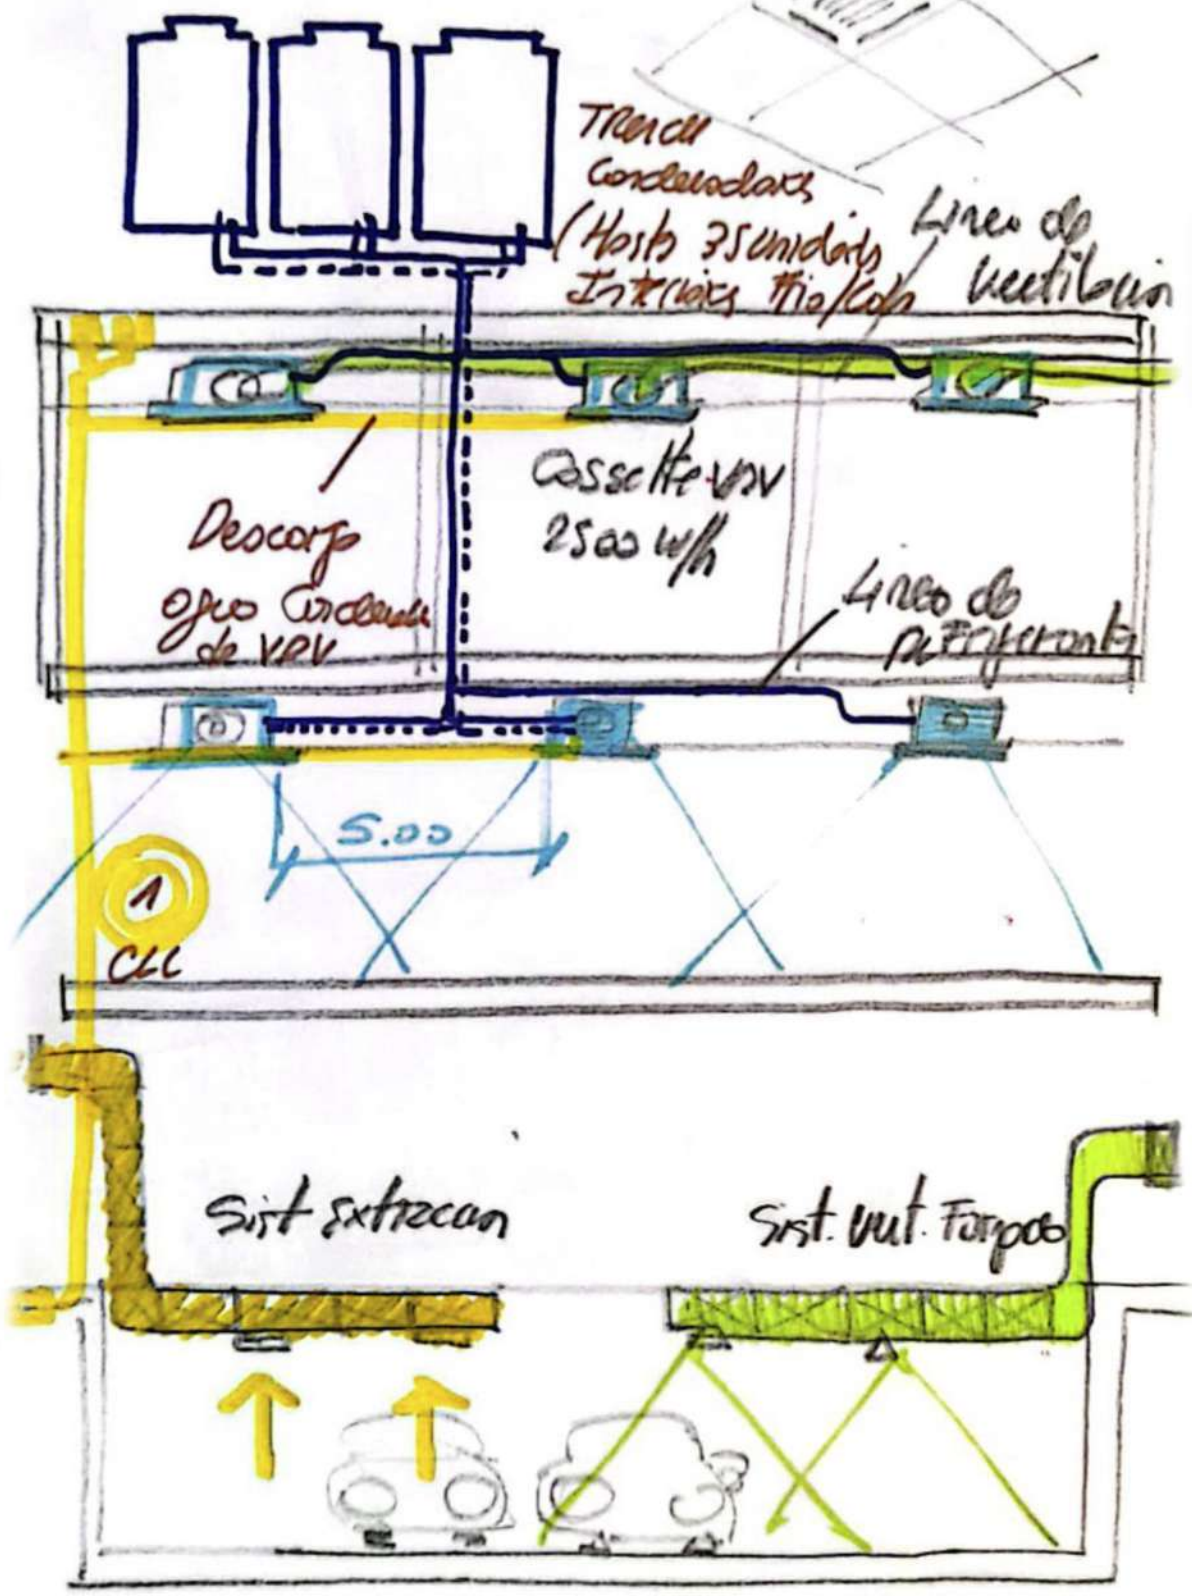 Tren de
Condensadores
(Hasta 35 unidades
Interiores Frio/Calor
Linea de
Ventilacion
Cassette VRV
2500 W/h
Descarga
agua Condensada
de VRV
Linea de
Refrigerante
5.00
1
CLL
Sist Extraccion
Sist. Vent. Forzada